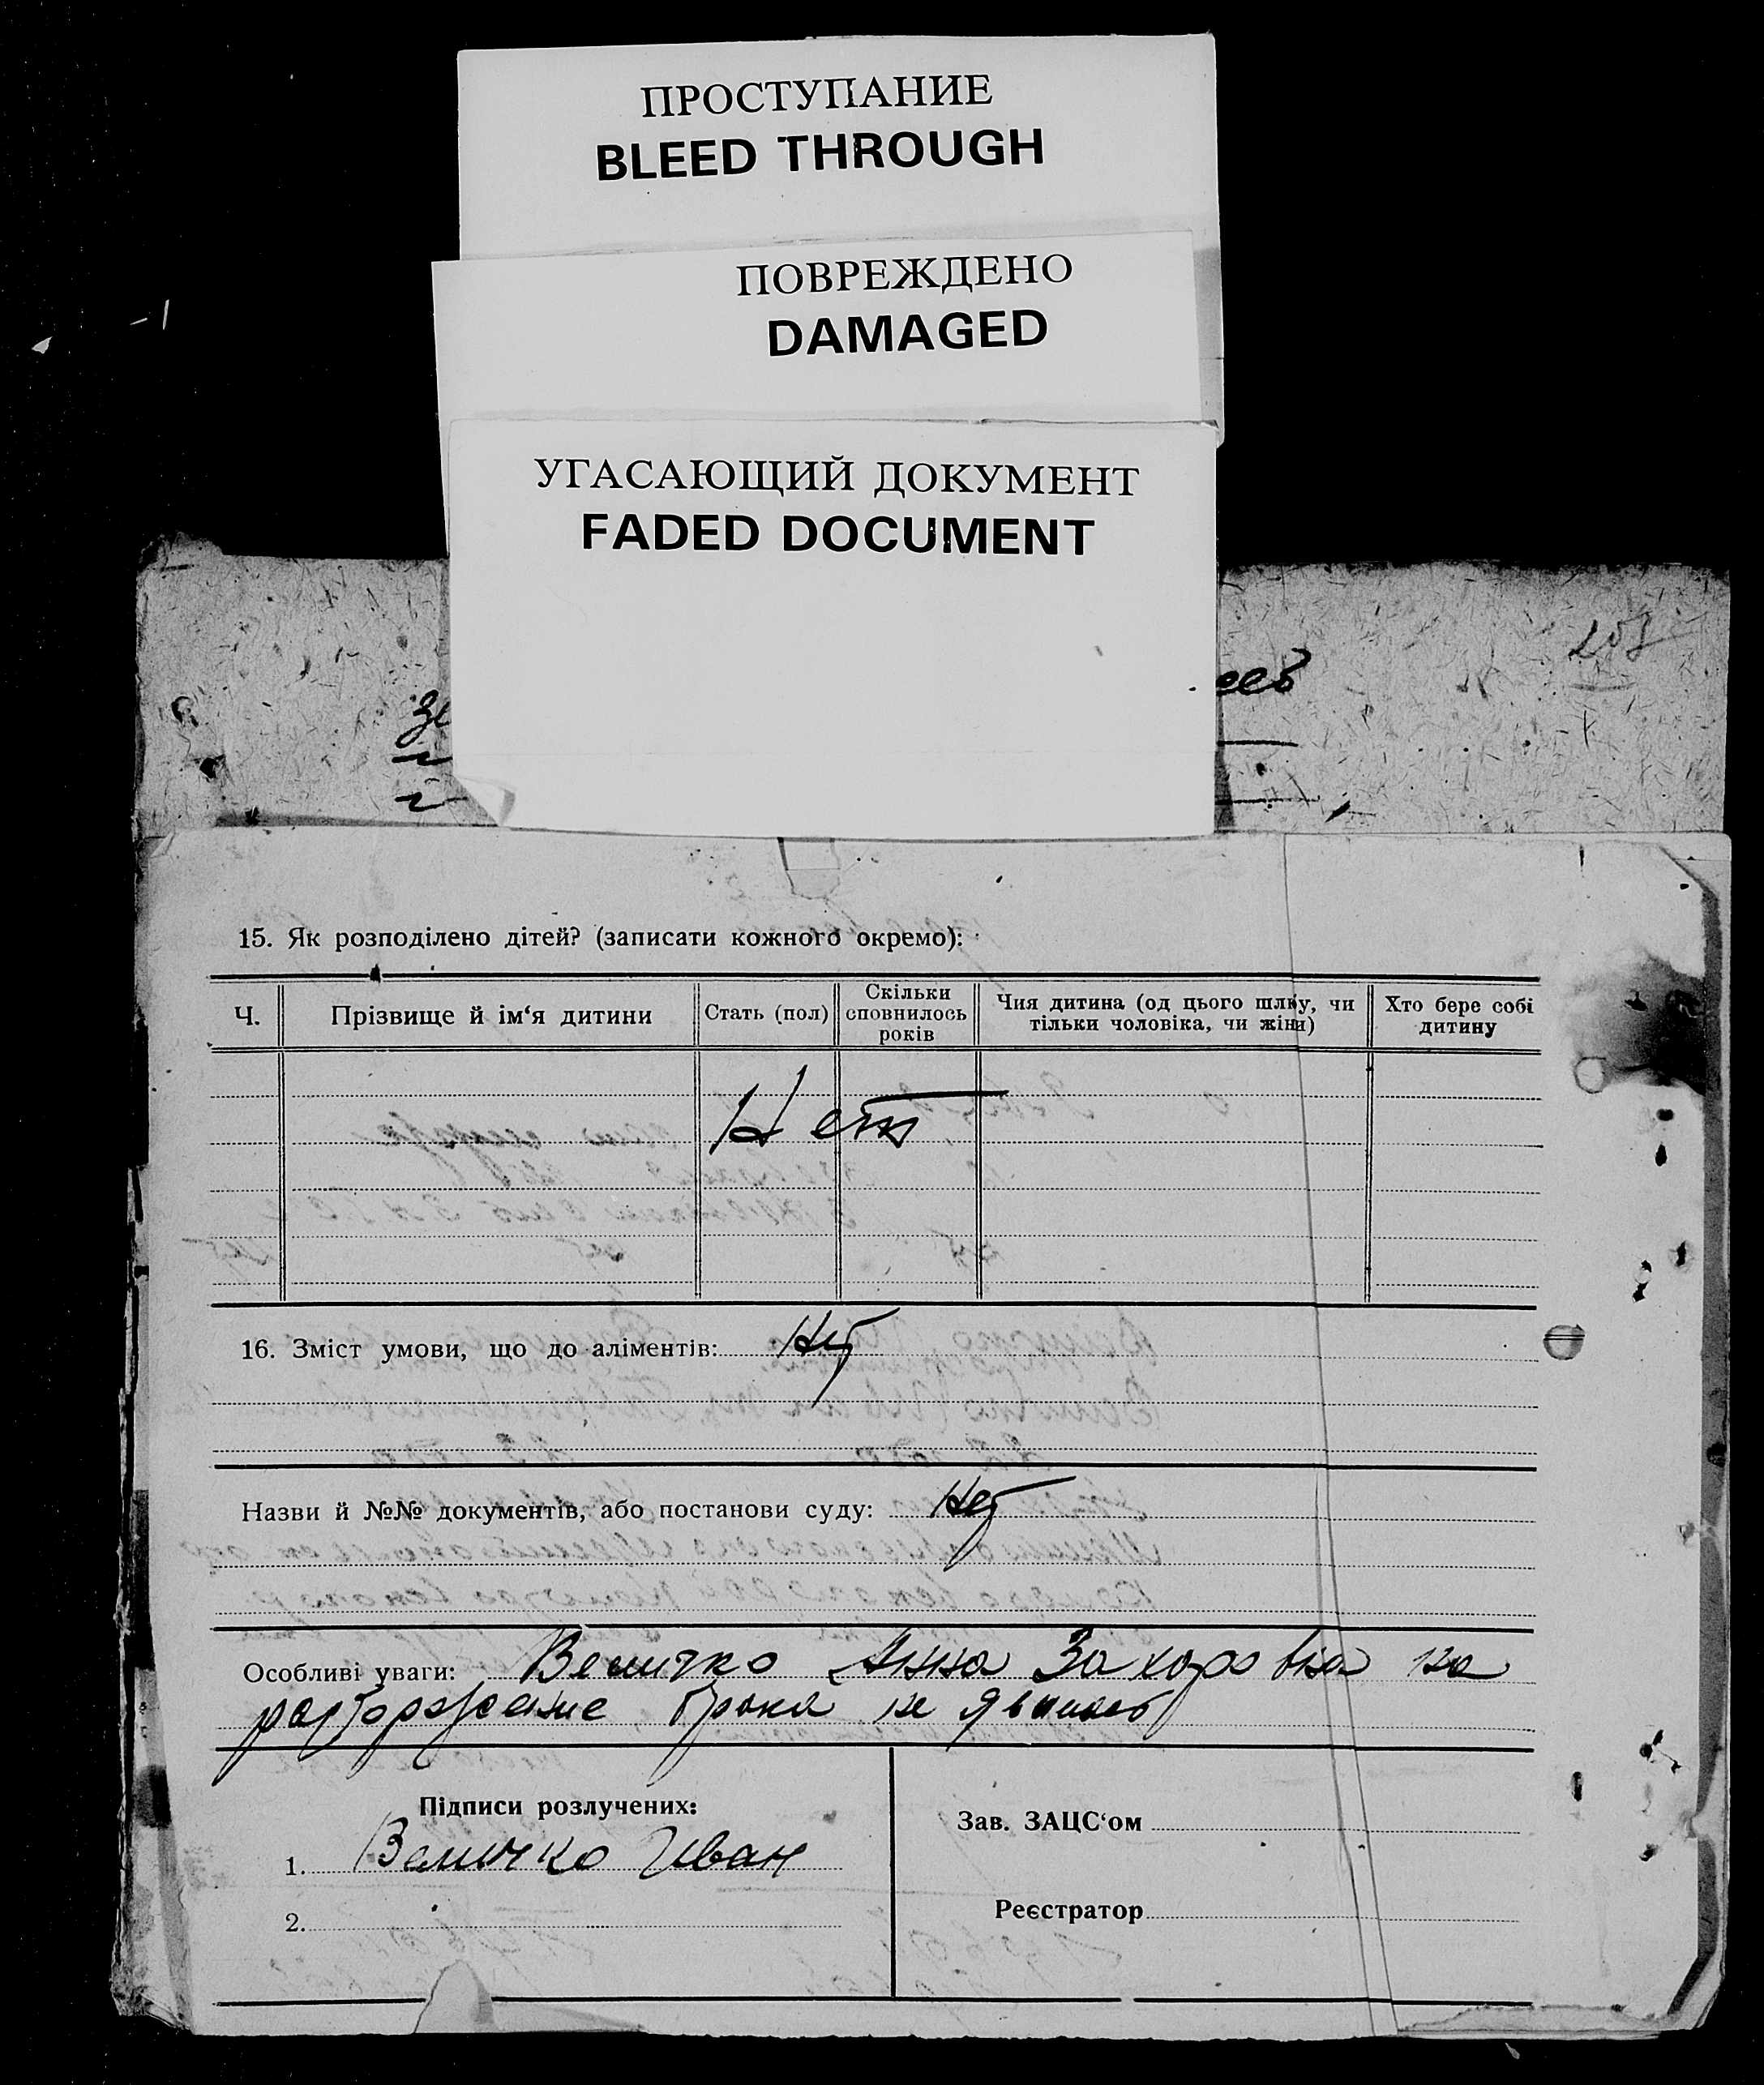 ПРОСТУПАНИЕ
BLEED THROUGH
ПОВРЕЖДЕНО
DAMAGED
УГАСАЮЩИЙ ДОКУМЕНТ
FADED DOCUMENT
15. Як розподілено дітей? (записати кожного окремо):
Ч.
Прізвище й ім‘я дитини
Стать (пол)
Скільки
сповнилось
років
Чия дитина (од цього шлюбу, чи
тільки чоловіка, чи жінки)
Хто бере собі
дитину
Нет
16. Зміст умови, що до аліментів: Нет
Назви й №№ документів, або постанови суду: Нет
Особливі уваги: Величко Анна Захаровна на
расторжение брака не явилась
Підписи розлучених:
1. Величко Иван
2.
Зав. ЗАЦС‘ом
Реєстратор